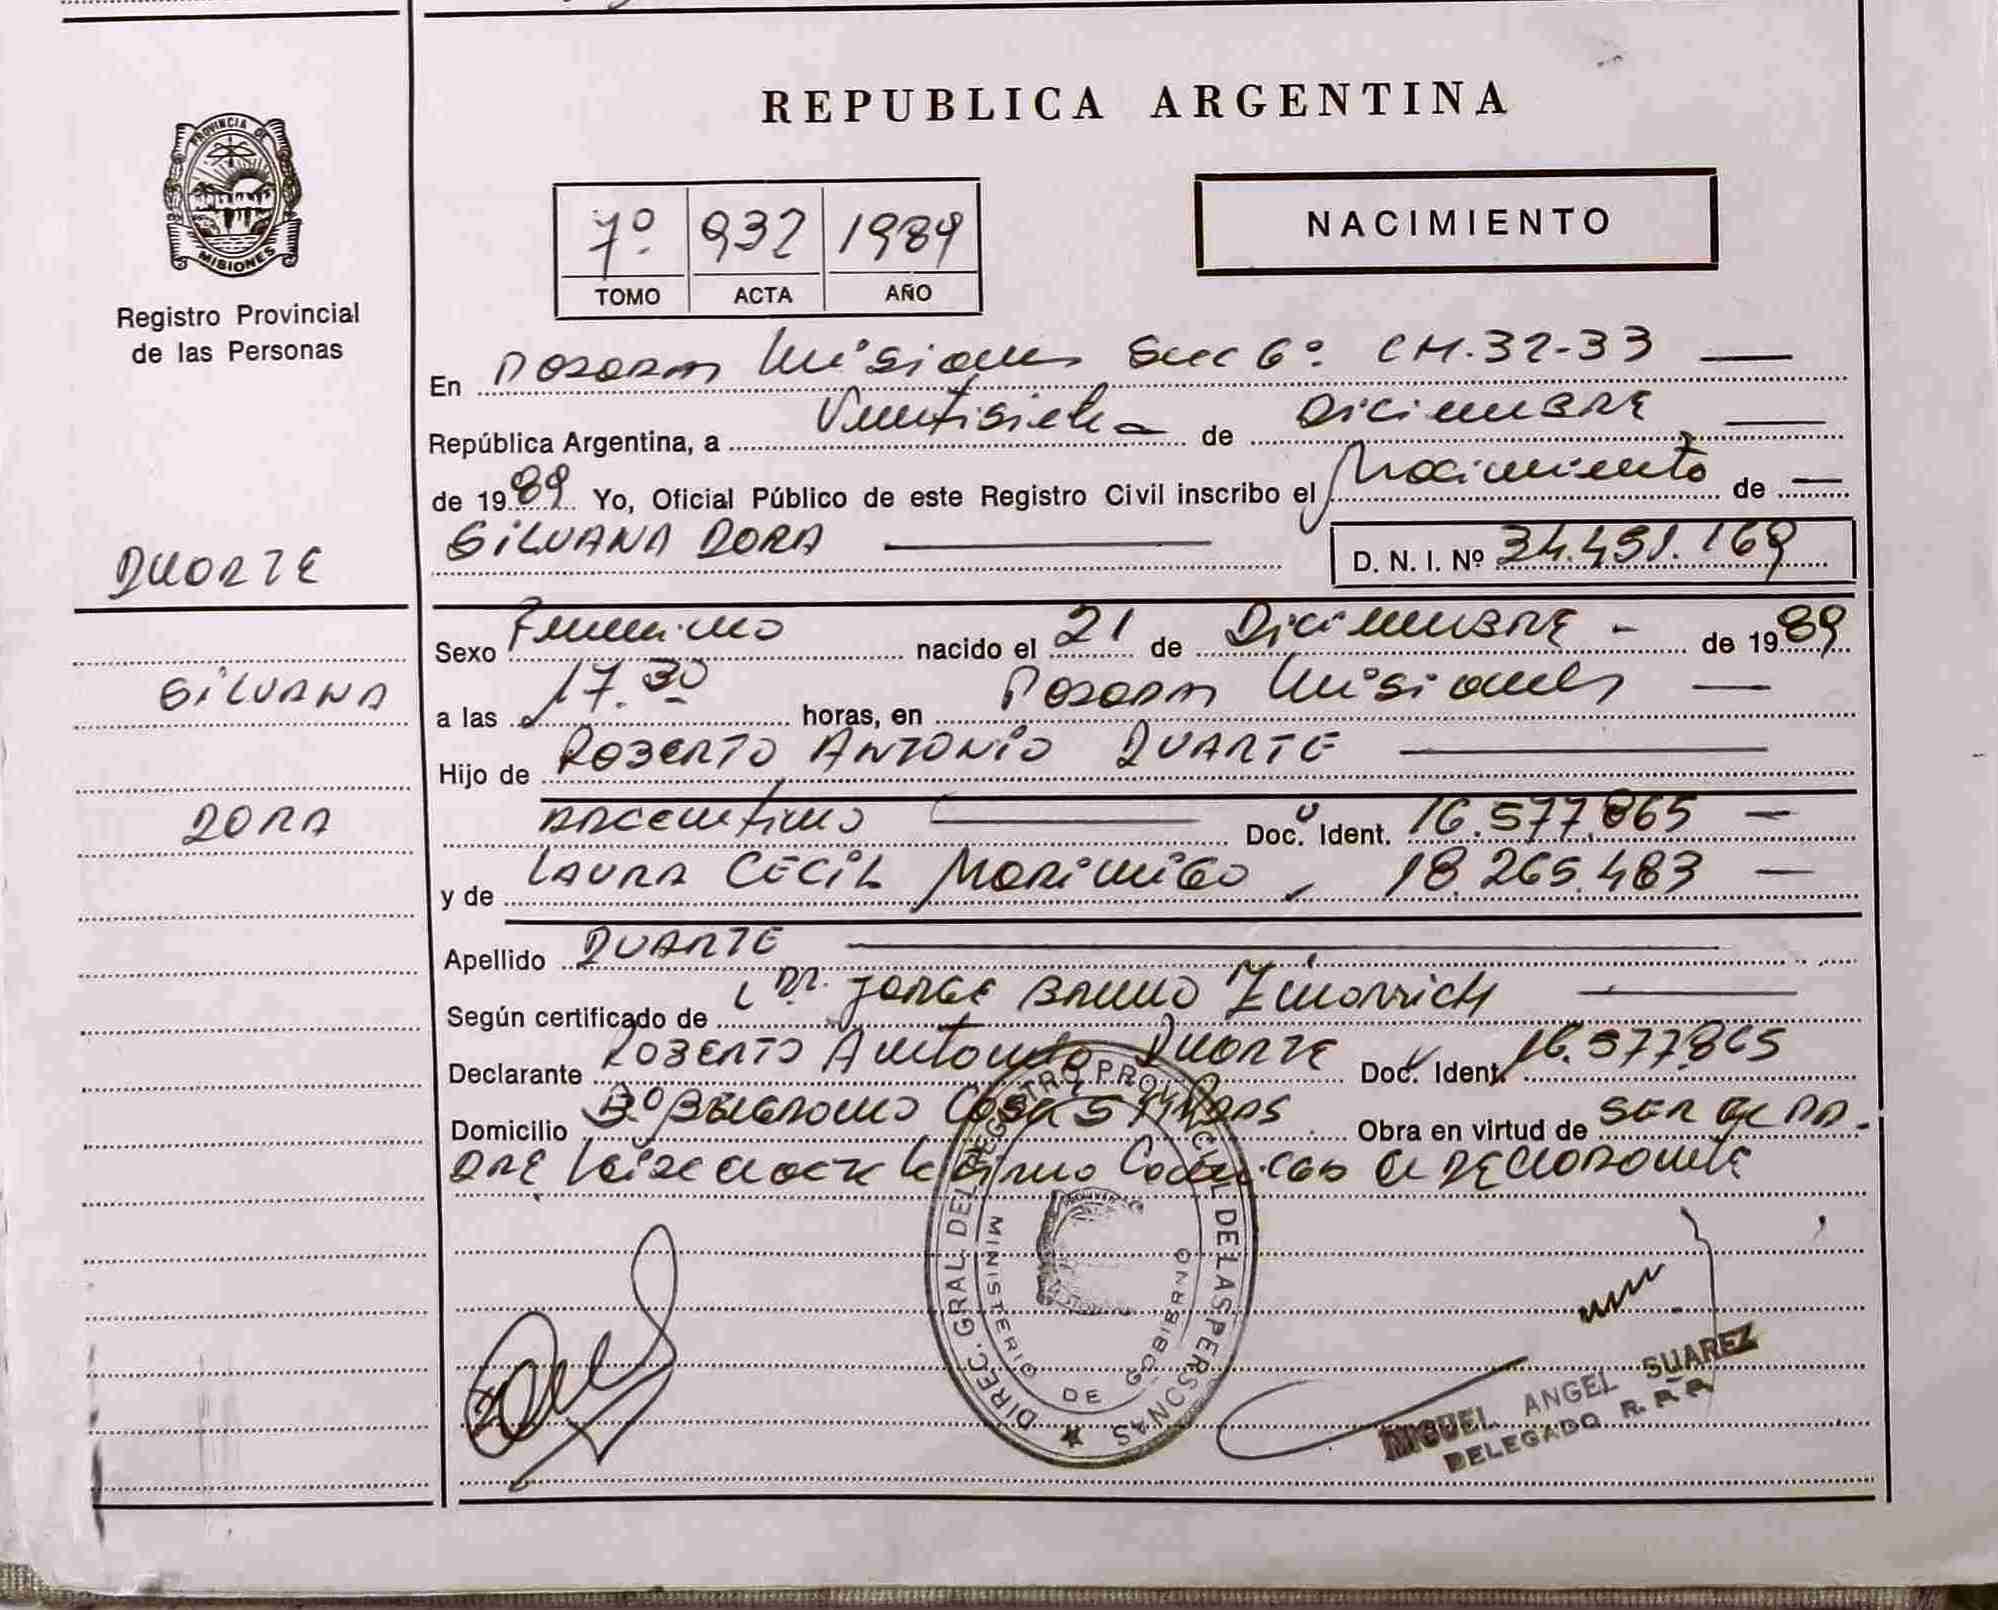 REPUBLICA ARGENTINA
PROVINCIA DE
MISIONES
Registro Provincial
de las Personas
7º 932 1989
TOMO ACTA AÑO
NACIMIENTO
En Posadas Misiones Secc 6º. CM.32-33
República Argentina, a Ventisiete de Diciembre
de 1989 Yo, Oficial Público de este Registro Civil inscribo el Nacimiento de
SILVANA DORA D. N. I. Nº 34.491.169
DUARTE
SILVANA
DORA
Sexo Femenino nacido el 21 de Diciembre de 1989
a las 17.30 horas, en Posadas Misiones
Hijo de ROBERTO ANTONIO DUARTE
Argentino Doc. Ident. 16.577.865
y de LAURA CECIL Moriñigo, 18.265.483
Apellido DUARTE
Según certificado de Dr. JORGE BRUNO
Declarante ROBERTO Antonio DUARTE Doc. Ident. 16.577.865
Domicilio Bº Belgrano Casa Obra en virtud de SER el PA-
DRE el declarante
DIREC. GRAL. DEL REGISTRO PROVINCIAL DE LAS PERSONAS
MINISTERIO DE GOBIERNO
MIGUEL ANGEL SUAREZ
DELEGADO R. P. P.